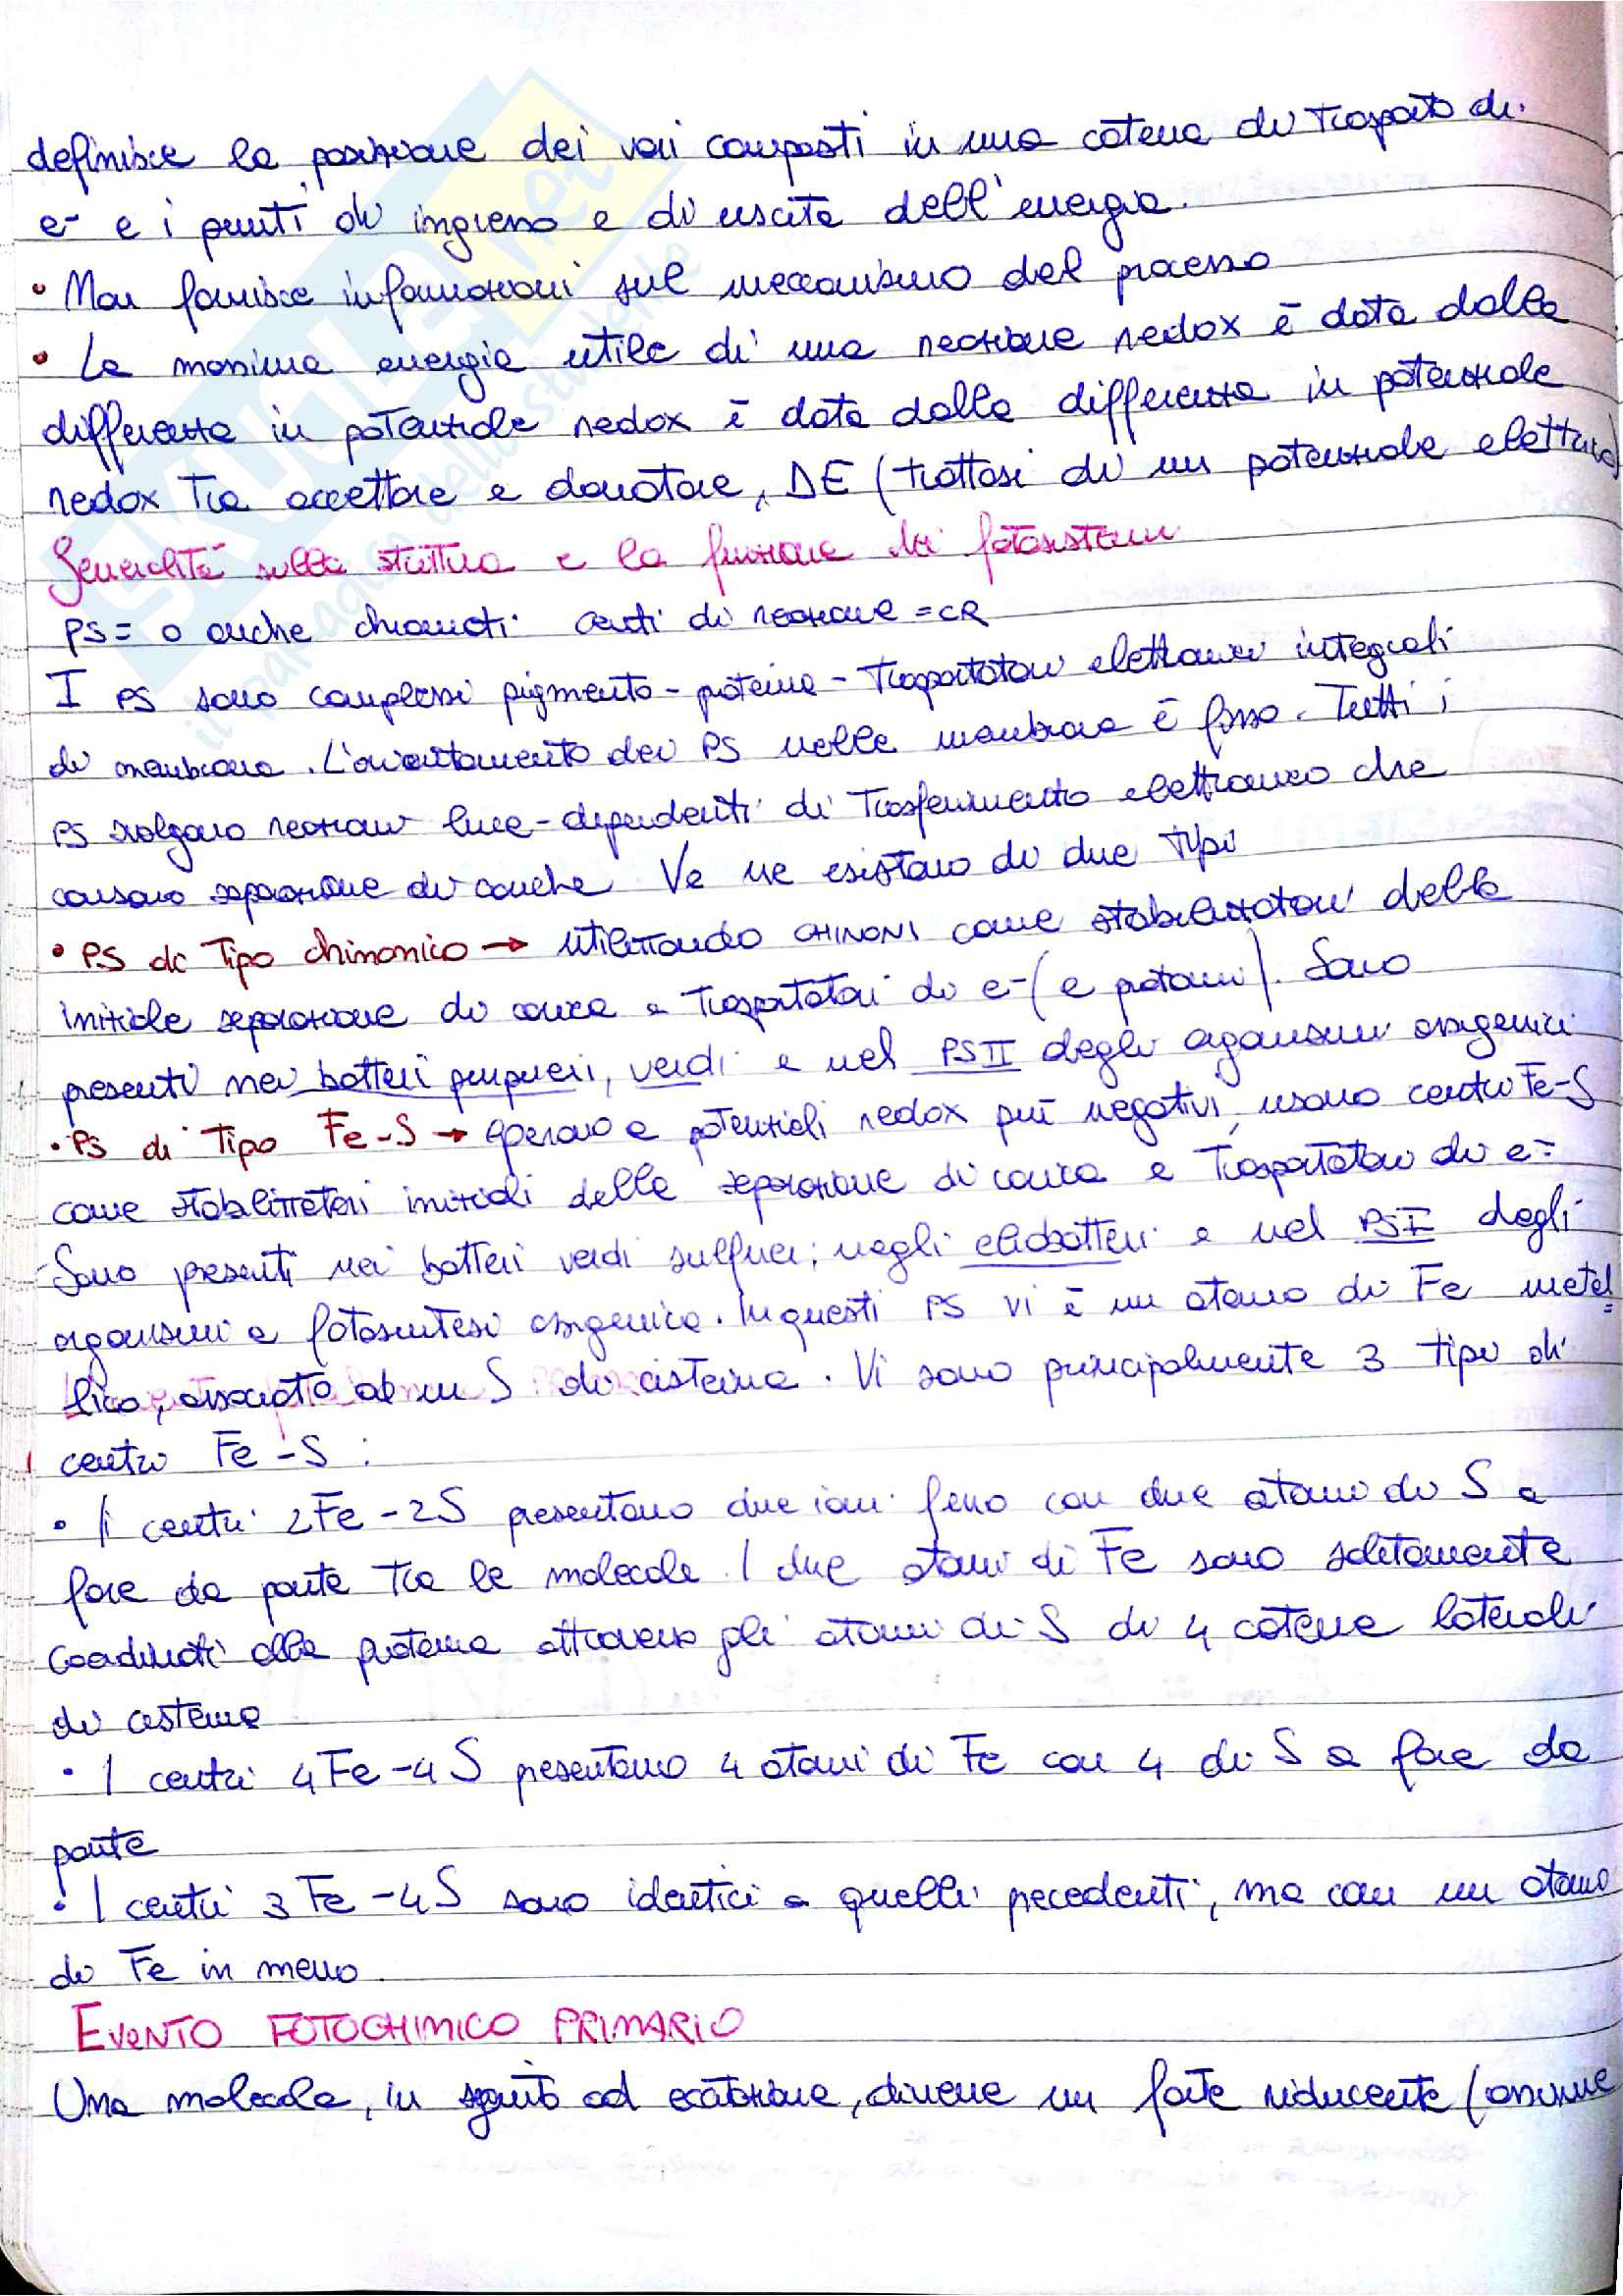 definisce la posizione dei vari composti in una catena di trasporto di
e- e i punti di ingresso e di uscita dell'energia.
• Non fornisce informazioni sul meccanismo del processo
• La massima energia utile di una reazione redox è data dalla
differenza in potenziale redox è data dalla differenza in potenziale
redox tra accettore e donatore, ΔE (trattasi di un potenziale elettrico)
Generalità sulla struttura e la funzione dei fotosistemi
PS= o anche chiamati centri di reazione = CR
I PS sono complessi pigmento-proteine-trasportatori elettronici integrali
di membrana. L'orientamento dei PS nelle membrane è fisso. Tutti i
PS svolgono reazioni luce-dipendenti di trasferimento elettronico che
causano separazione di cariche Ve ne esistono di due tipi
• PS di tipo chinonico → utilizzando CHINONI come stabilizzatori della
iniziale separazione di carica e trasportatori di e- (e protoni). Sono
presenti nei batteri purpurei, verdi e nel PSII degli organismi ossigenici
• PS di tipo Fe-S → operano a potenziali redox più negativi, usano centri Fe-S
come stabilizzatori iniziali della separazione di carica e trasportatori di e-
Sono presenti nei batteri verdi sulfurei, negli eliobatteri e nel PSI degli
organismi a fotosintesi ossigenica. In questi PS vi è un atomo di Fe metal
lico, associato ad un S di cisteina. Vi sono principalmente 3 tipi di
centri Fe-S:
• I centri 2Fe-2S presentano due ioni ferro con due atomi di S a
fare da ponte tra le molecole. I due atomi di Fe sono solitamente
coordinati alla proteina attraverso gli atomi di S di 4 catene laterali
di cisteina
• I centri 4Fe-4S presentano 4 atomi di Fe con 4 di S a fare da
ponte
• I centri 3Fe-4S sono identici a quelli precedenti, ma con un atomo
di Fe in meno
EVENTO FOTOCHIMICO PRIMARIO
Una molecola, in seguito ad eccitazione, diviene un forte riducente (
SKUOLA.net